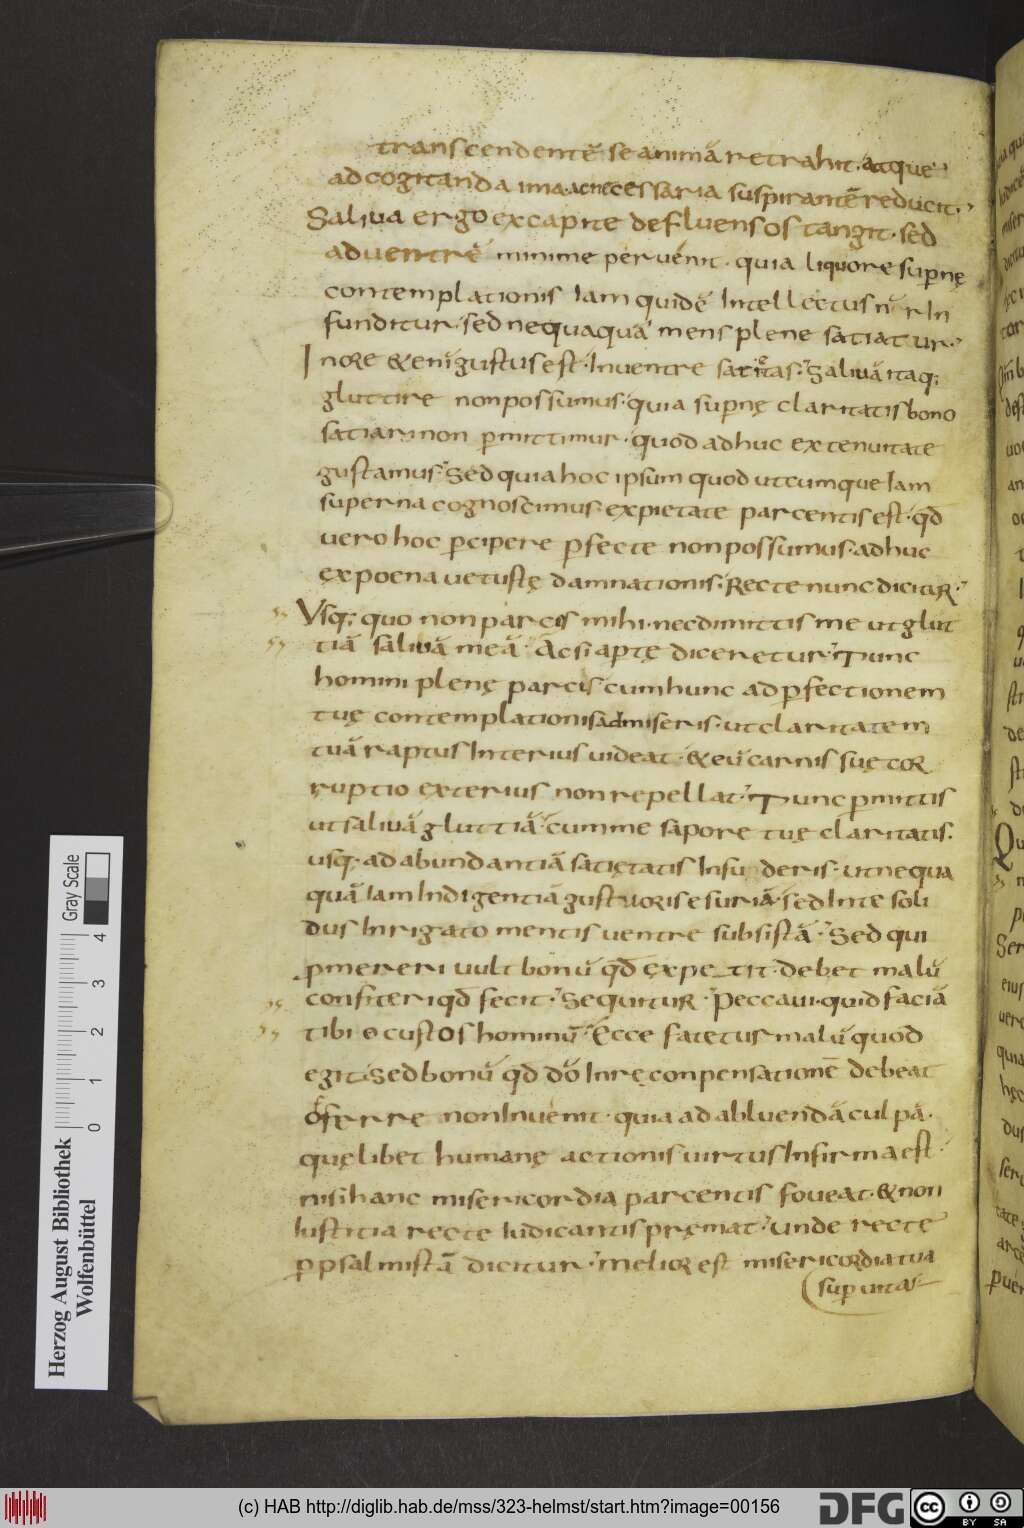 transcendentē se animā retrahit. atque
ad cogitanda ima ac necessaria suspirantē reducit.
Saliva ergo ex capite defluens os tangit. sed
ad ventrē minime pervenit. quia liquore supnę
contemplationis Iam quidē Intellectus nr̄ In
funditur. sed nequaquā mens plene satiatur.
In ore & enī gustus est. In ventre satietas. Salivā itaq;
gluttire non possumus. quia supnę claritatis bono
satiari non pmittimur. quod adhuc ex tenuitate
gustamus. Sed quia hoc ipsum quod utcumque Iam
superna cognoscimus. ex pietate parcentis est. qđ
vero hoc pcipere pfecte non possumus. adhuc
ex poena vetustę damnationis. Recte nunc dicitur.
Vsq; quo non parcis mihi. nec dimittis me ut glut
tiā salivā meā. Acsi aptę diceretur. Tunc
homini plenę parcis cum hunc ad pfectionem
tuę contemplationis admiseris. ut claritatem
tuā raptus Interius videat. & eū carnis suę cor
ruptio exterius non repellat. Tunc pmittis
ut salivā gluttiā. cum me sapore tuę claritatis.
usq. ad abundantiā satiętatis Insuderis. ut nequa
quā Iam Indigentiā gustu oris esuriā. sed In te soli
dus Inrigato mentis ventre subsistā. Sed qui
pmereri vult bonū qđ expetit. debet malū
confiteri qđ fecit. Sequitur. Peccavi. quid faciā
tibi o custos hominū. Ecce fatetur malū quod
egit. Sed bonū qđ dō In ręconpensationē debeat
offerre non Invenit. quia ad abluendā culpā.
quęlibet humanę actionis virtus Infirma est.
nisi hanc misericordia parcentis foveat. & non
Iustitia recte Iudicantis pręmat. Unde recte
p psalmistā dicitur. Melior est misericordia tua
sup vitas
Herzog August Bibliothek
Wolfenbüttel
Gray Scale
0 1 2 3 4
(c) HAB http://diglib.hab.de/mss/323-helmst/start.htm?image=00156
DFG
cc
BY SA